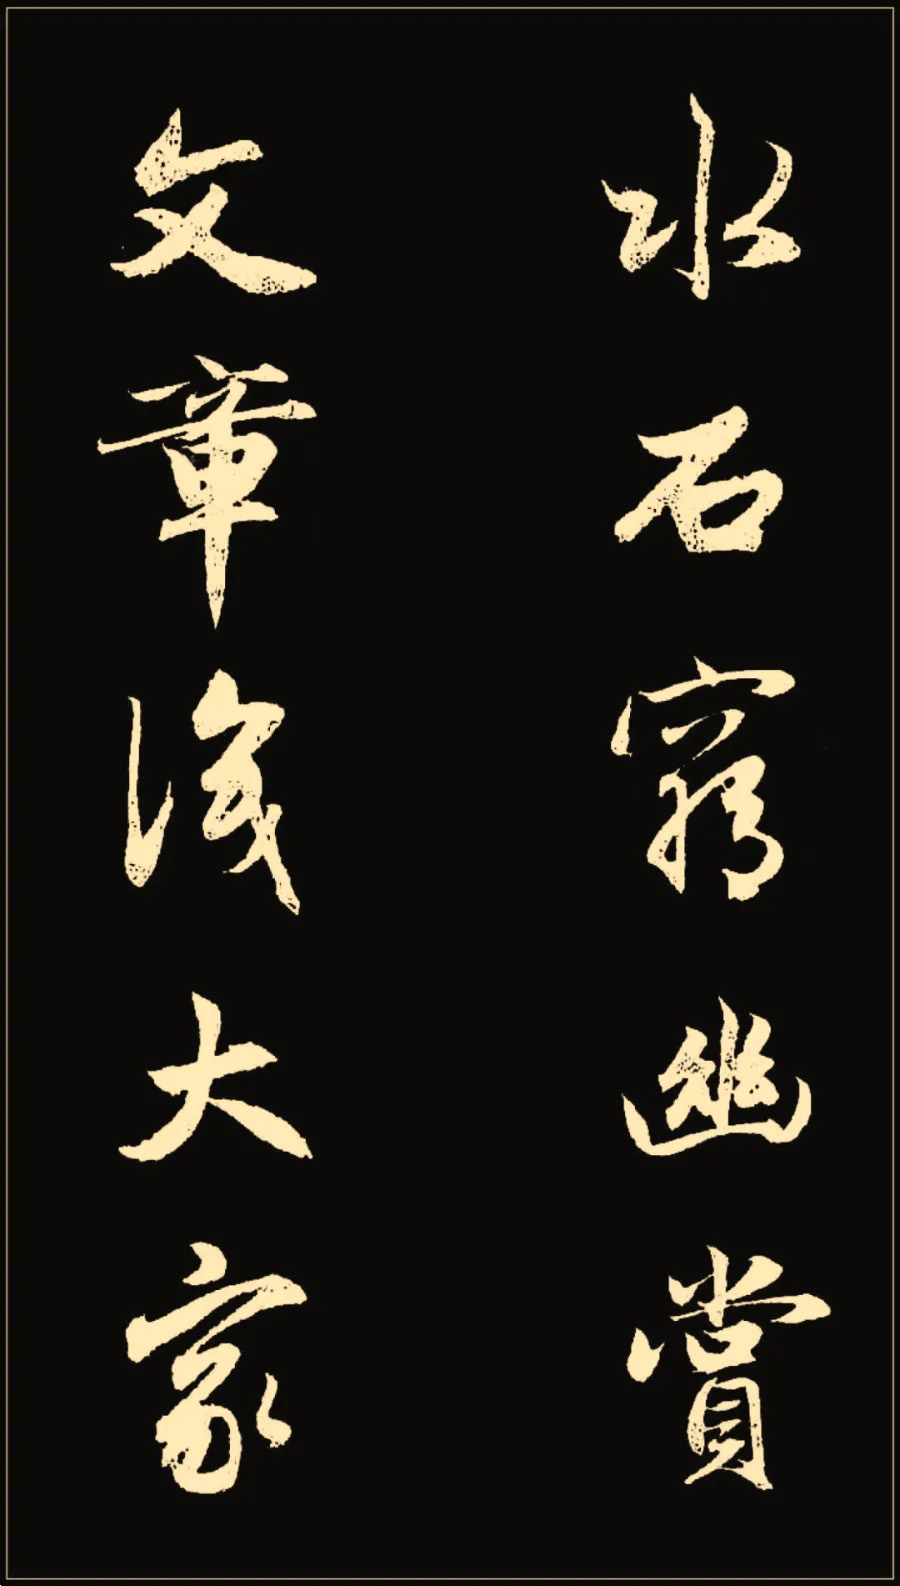 水石窮幽賞
文章大家